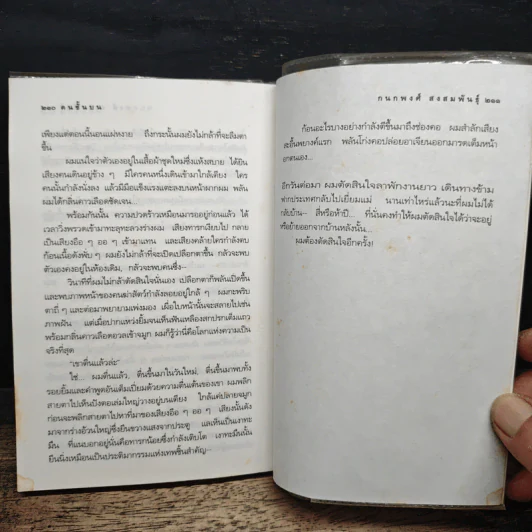 ๒๑๐ คนชั้นบน
เพียงแต่ตอนนั้นอนแผ่หงาย ถึงกระนั้นผมยังไม่กล้าที่จะลืมตา
ขึ้น
ผมแน่ใจว่าตัวเองอยู่ในเสื้อผ้าชุดใหม่ซึ่งแห้งสบาย ได้ยิน
เสียงคนเดินอยู่ข้าง ๆ มีใครคนหนึ่งเดินเข้ามาใกล้เตียง ใคร
คนนั้นกำลังนั่งลง แล้วมีมือแข็งแรงแตะลงบนหน้าผากผม พลัน
ผมได้กลิ่นคาวเลือดชัดเจน...
พร้อมกันนั้น ความปวดร้าวเหมือนมารออยู่ก่อนแล้ว ได้
เวลาวิ่งพรวดเข้ามาทะลุทะลวงร่างผม เสียงทารกเงียบไป กลาย
เป็นเสียงอือ ๆ ออ ๆ เข้ามาแทน และเสียงคล้ายใครกำลังตบ
ก้อนเนื้อดังพับ ๆ ผมยังไม่กล้าที่จะเปิดเปลือกตาขึ้น กลัวจะพบ
ตัวเองคงอยู่ในห้องเดิม, กลัวจะพบคนซึ่ง—
วินาทีที่ผมไม่กล้าตัดสินใจนั่นเอง เปลือกตาก็พลันเปิดขึ้น
และพบภาพหน้าของคนฆ่าสัตว์กำลังลอยอยู่ใกล้ ๆ ผมกะพริบ
ตาถี่ ๆ และต่อมาพยายามเพ่งมอง เผื่อใบหน้านั้นจะสลายไปเช่น
ภาพฝัน แต่เมื่อปากแหว่งยิ้มจนเห็นฟันเหลืองสกปรกเต็มแถว
พร้อมกลิ่นคาวเลือดอวลเข้าจมูก ผมก็รู้ว่านี่คือโลกแห่งความเป็น
จริงที่สุด
“เขาตื่นแล้วล่ะ”
ใช่... ผมตื่นแล้ว, ตื่นขึ้นมาในวันใหม่, ตื่นขึ้นมาพบทั้ง
รอยยิ้มและคำพูดอันเต็มเปี่ยมด้วยความตื่นเต้นของเขา ผมพลิก
สายตาไปเห็นปังตอเล่มใหญ่วางอยู่บนเตียง ใกล้แค่ปลายจมูก
ก่อนจะพลิกสายตาไปหาที่มาของเสียงอือ ๆ ออ ๆ เสียงนั้นดัง
มาจากร่างอ้วนใหญ่ซึ่งยืนขวางแสงจากประตู และเห็นเป็นเงาทะ
มึน ที่แนบอกอยู่นั่นคือทารกน้อยซึ่งกำลังเติบโต เงาทะมึนนั้น
ยืนนิ่งเหมือนเป็นประติมากรรมแห่งเทพชิ้นสำคัญ—
กนกพงศ์ สงสมพันธุ์ ๒๑๑
ก้อนอะไรบางอย่างกำลังตีขึ้นมาถึงช่องคอ ผมสำลักเสียง
สะอื้นพยางค์แรก พลันโก่งคอปล่อยอาเจียนออกมารดเต็มหน้า
อกตนเอง...
อีกวันต่อมา ผมตัดสินใจลาพักงานยาว เดินทางข้าม
ฟากประเทศกลับไปเยี่ยมแม่ นานเท่าไหร่แล้วนะที่ผมไม่ได้
กลับบ้าน- สี่หรือห้าปี... ที่นั่นคงทำให้ผมตัดสินใจได้ว่าจะอยู่
หรือย้ายออกจากบ้านหลังนั้น...
ผมต้องตัดสินใจอีกครั้ง!